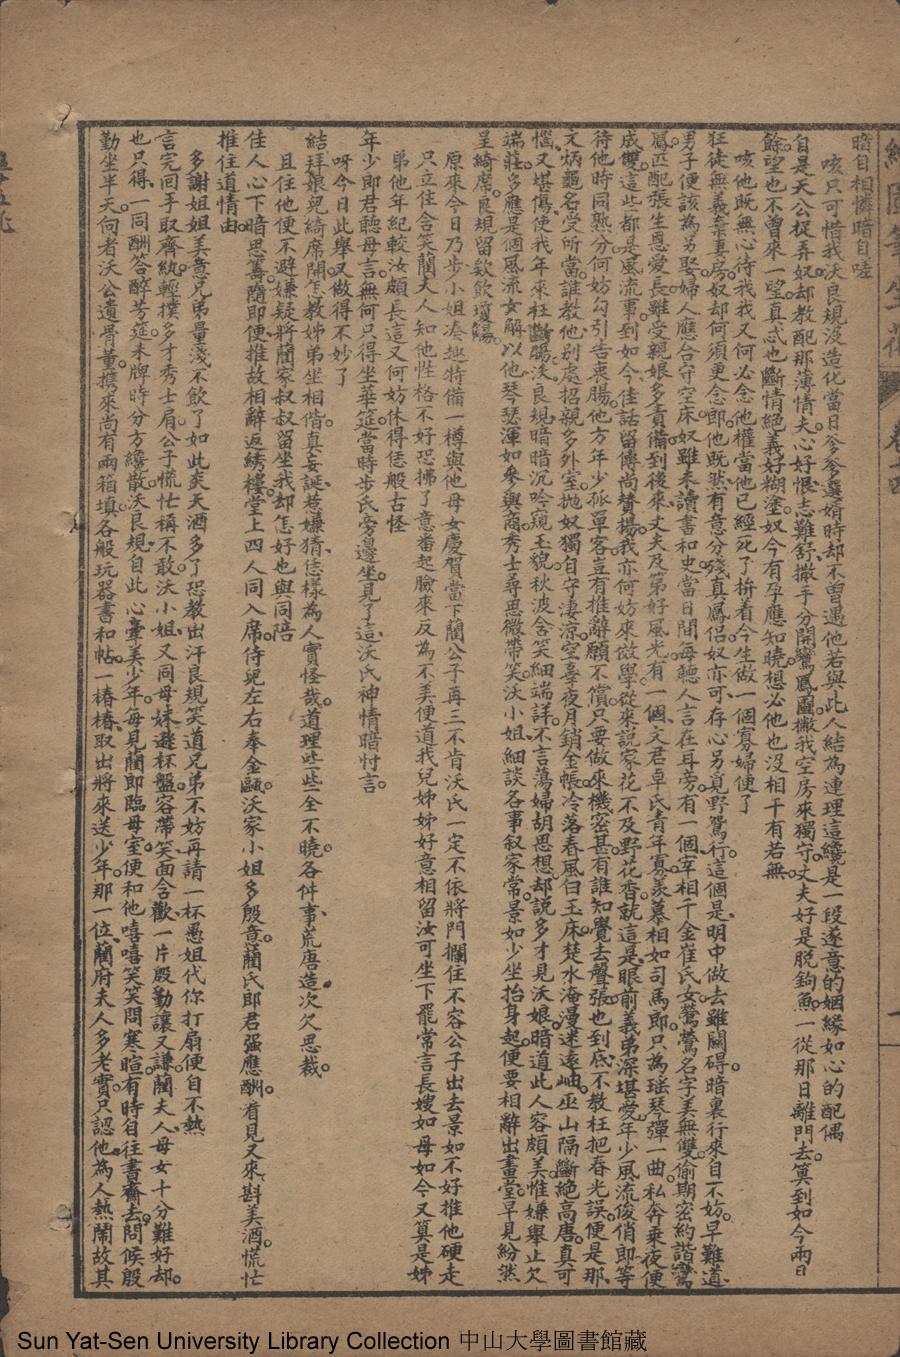 暗自相憐暗自嗟
咳只可惜我沃良規沒造化當日爹爹選婿時却不曾遇他若與此人結為連理這纔是一段遂意的姻緣如心的配偶
自是天公捉弄奴却教配那薄情夫心好恨志難舒撒手分開鸞鳳圖撇我空房來獨守丈夫好是脫鉤魚一從那日離門去算到如今兩日
餘望也不曾來一望真忒也斷情絕義好糊塗奴今有孕應知曉想必他也沒相干有若無
咳他既無心待我我又何必念他權當他已經死了拚着今生做一個寡婦便了
狂徒無義棄妻房奴却何須更念郎他既然有意分殘真鳳侶奴亦可存心另覓野鴛行這個是明中做去雖關碍暗裏行來自不妨早難道
男子便該為另娶婦人應合守空床奴雖未讀書和史當日閒每聽人言在耳旁有一個宰相千金崔氏女鶯鶯名字美無雙偷期密約諧鸞
鳳匹配張生恩愛長雖受親娘多責備到後來丈夫及第好風光有一個文君卓氏青年寡羨慕相如司馬郎只為瑤琴彈一曲私奔乘夜便
成雙這些都是風流事到如今佳話留傳尚贊揚我亦何妨來傚學從來說家花不及野花香就這是眼前義弟深堪愛年少風流俊俏即等
待他時同熟分何妨勾引告衷腸他方年少孤單客豈有推辭願不償只要做來機密甚有誰知覺去聲張也到底不教枉把春光誤便是那
文炳龜名受所當誰教他别處招親多外室拋奴獨自守淒涼空臺夜月銷金帳冷落春風白玉床楚水淹漫迷遠岫巫山隔斷絕高唐真可
惱又堪傷使我年來枉斷腸沃良規暗暗沉吟窺玉貌秋波含笑細端詳不言蕩婦胡思想却說多才見沃娘暗道此人容頗美惟嫌舉止欠
端莊多應是個風流女解以他琴瑟渾如參與商秀士尋思微帶笑沃小姐細談各事叙家常景如少坐抬身起便要相辭出畫堂早見紛然
呈綺席良規留欵飲瓊觴
原來今日乃步小姐凑趣特備一樽與他母女慶賀當下藺公子再三不肯沃氏一定不依將門攔住不容公子出去景如不好推他硬走
只立住含笑藺夫人知他性格不好恐拂了意畨起臉來反為不美便道我兒姊姊好意相留汝可坐下罷常言長嫂如母如今又算是姊
弟他年紀較汝頗長這又何妨休得恁般古怪
年少郎君聽母言無何只得坐華筵當時步氏旁邊坐見了這沃氏神情暗忖言
呀今日此舉又做得不妙了
結拜娘兒綺席開怎教姊弟坐相偕真妄誕惹嫌猜恁樣為人實怪哉道理些些全不曉各件事荒唐造次欠思裁
且住他便不避嫌疑將藺家叔叔留坐我却怎好也與同陪
佳人心下暗思籌隨即便推故相辭返綉樓堂上四人同入席侍兒左右奉金甌沃家小姐多殷意藺氏郎君强應酬看見又來斟美酒慌忙
推住道情由
多謝姐姐美意兄弟量淺不飲了如此炎天酒多了恐教出汗良規笑道兄弟不妨再請一杯愚姐代你打扇便自不熱
言完回手取齊紈輕撲多才秀士肩公子慌忙稱不敢沃小姐又同母妹遊杯盤容帶笑面含歡一片殷勤讓又謙藺夫人母女十分難好却
也只得一同酬答醉芳筵未牌時分方纔散沃良規自此心牽美少年每見藺即臨母室便和他嘻嘻笑笑問寒暄有時自往書齋去問候殷
勤坐半天向者沃公遺骨董携來尚有兩箱填各般玩器書和帖一樁樁取出將來送少年那一位藺府夫人多老實只認他為人熱鬧故其
Sun Yat-Sen University Library Collection 中山大學圖書館藏